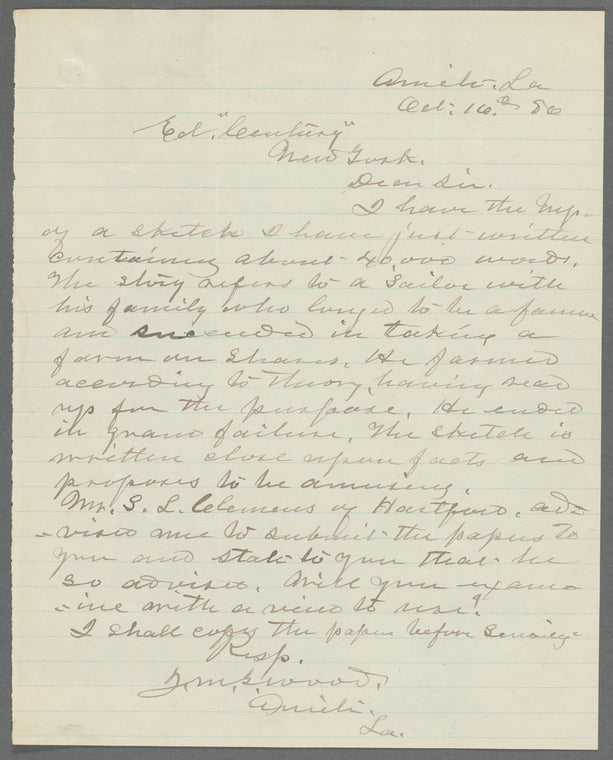 Amite. La
Oct. 16. 86
Ed. "Century"
New York.
Dear Sir.
I have the Mss.
of a sketch I have just written
containing about 40,000 words.
The story refers to a sailor with
his family who longed to be a farmer
and succeeded in taking a
farm on shares. He farmed
according to theory, having read
up for the purpose. He ended
in grand failure. The sketch is
written close upon facts and
proposes to be amusing.
Mr. S. L. Clemens of Hartford. ad=
=vised me to submit the papers to
you and state to you that he
so advised. Will you exam=
=ine with a view to use?
I shall copy the paper before sending=
Resp.
Amite.
La.